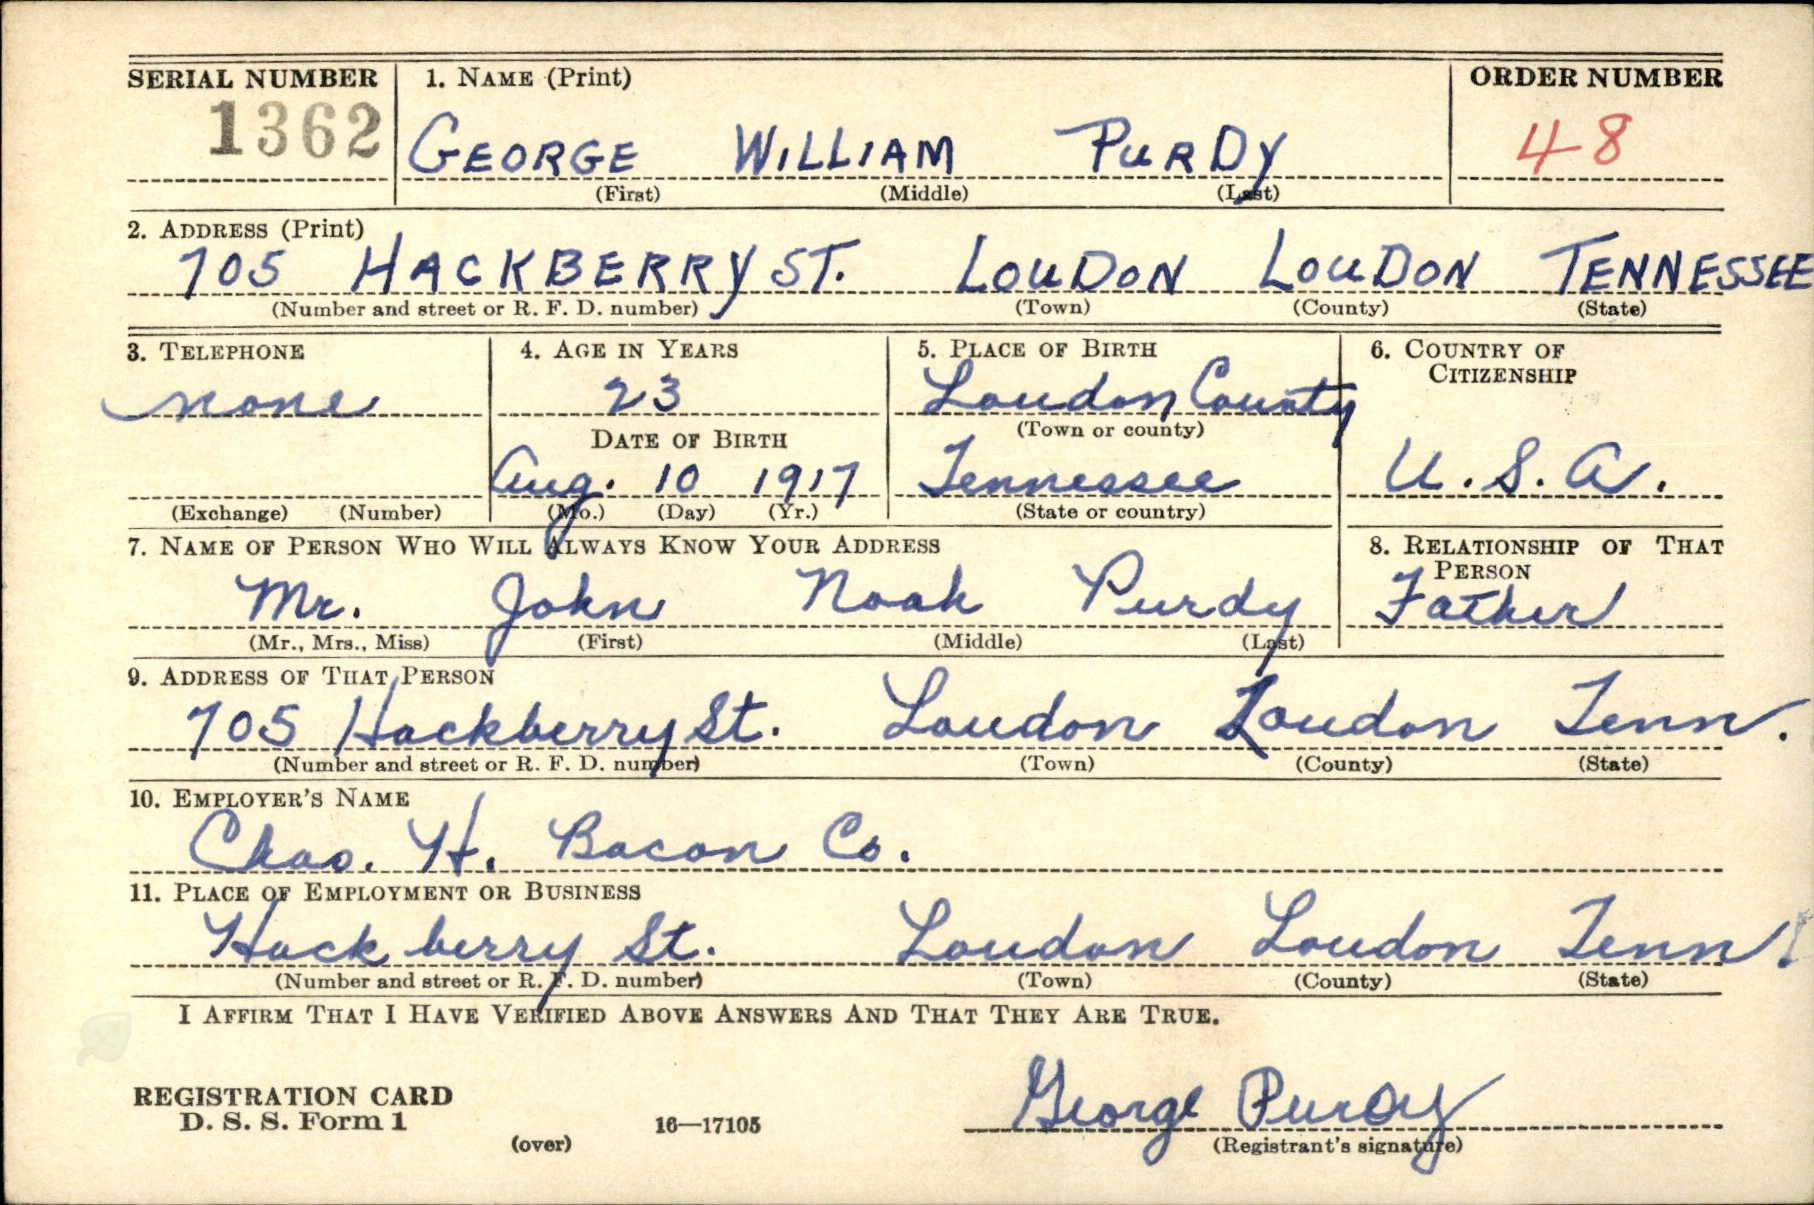 SERIAL NUMBER 1. NAME (Print) ORDER NUMBER
1362 GEORGE WILLIAM PURDY 48
(First) (Middle) (Last)
2. ADDRESS (Print)
705 HACKBERRY ST. LOUDON LOUDON TENNESSEE
(Number and street or R. F. D. number) (Town) (County) (State)
3. TELEPHONE 4. AGE IN YEARS 5. PLACE OF BIRTH 6. COUNTRY OF
CITIZENSHIP
none 23 Loudon County
(Town or county)
DATE OF BIRTH
Aug. 10 1917 Tennessee U.S.A.
(Exchange) (Number) (Mo.) (Day) (Yr.) (State or country)
7. NAME OF PERSON WHO WILL ALWAYS KNOW YOUR ADDRESS 8. RELATIONSHIP OF THAT
PERSON
Mr. John Noah Purdy Father
(Mr., Mrs., Miss) (First) (Middle) (Last)
9. ADDRESS OF THAT PERSON
705 Hackberry St. Loudon Loudon Tenn.
(Number and street or R. F. D. number) (Town) (County) (State)
10. EMPLOYER'S NAME
Chas. H. Bacon Co.
11. PLACE OF EMPLOYMENT OR BUSINESS
Hackberry St. Loudon Loudon Tenn.
(Number and street or R. F. D. number) (Town) (County) (State)
I AFFIRM THAT I HAVE VERIFIED ABOVE ANSWERS AND THAT THEY ARE TRUE.
REGISTRATION CARD
D. S. S. Form 1
(over) 16—17105
George Purdy
(Registrant's signature)